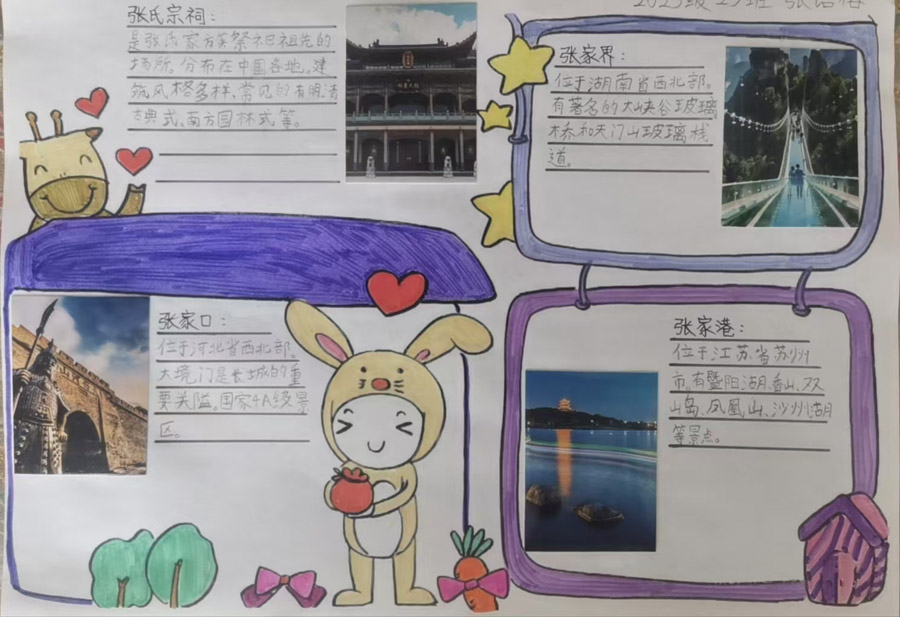 张氏宗祠：
是张氏家族祭祀祖先的
场所。分布在中国各地，建
筑风格多样，常见的有明清
古典式、南方园林式等。
张家界：
位于湖南省西北部。
有著名的大峡谷玻璃
桥和天门山玻璃栈
道。
张家口：
位于河北省西北部。
大境门是长城的重
要关隘。国家4A级景
区。
张家港：
位于江苏省苏州
市。有暨阳湖、香山、双
山岛、凤凰山、沙洲湖
等景点。